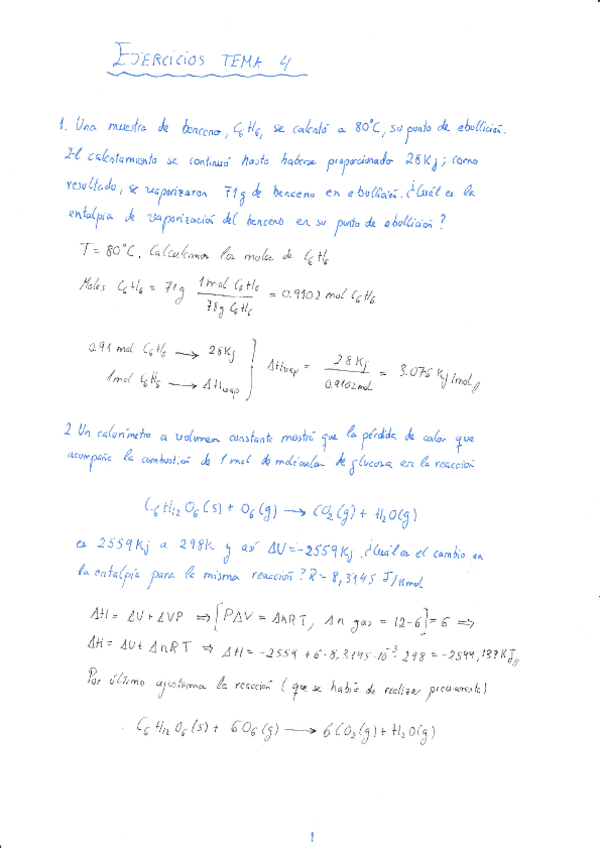 EJERCICIOS TEMA 4
1. Una muestra de benceno, C6H6, se calentó a 80°C, su punto de ebullición.
El calentamiento se continuó hasta haberse proporcionado 28Kj; como
resultado, se vaporizaron 71g de benceno en ebullición. ¿Cuál es la
entalpia de vaporización del benceno en su punto de ebullición?
T = 80°C. Calculamos los moles de C6H6
Moles C6H6 = 71g 1mol C6H6 / 78g C6H6 = 0.9102 mol C6H6
0.91 mol C6H6 → 28Kj
1mol C6H6 → ΔHvap } ΔHvap = 28Kj / 0.9102mol = 3.076 Kj/mol
2 Un calorímetro a volumen constante mostró que la pérdida de calor que
acompaña la combustión de 1 mol de moléculas de glucosa en la reacción
C6H12O6(s) + O6(g) → CO2(g) + H2O(g)
es 2559Kj a 298K y así ΔU=-2559Kj. ¿Cuál es el cambio en
la entalpía para la misma reacción? R= 8,3145 J/Kmol
ΔH = ΔU + ΔVP ⇒ [PΔV = ΔnRT, Δn gas = 12-6] = 6 ⇒
ΔH = ΔU + ΔnRT ⇒ ΔH = -2559 + 6·8,3145·10⁻³·298 = -2544,137KJ
Por último ajustamos la reacción (que se había de realizar previamente)
C6H12O6(s) + 6O6(g) → 6CO2(g) + H2O(g)
1